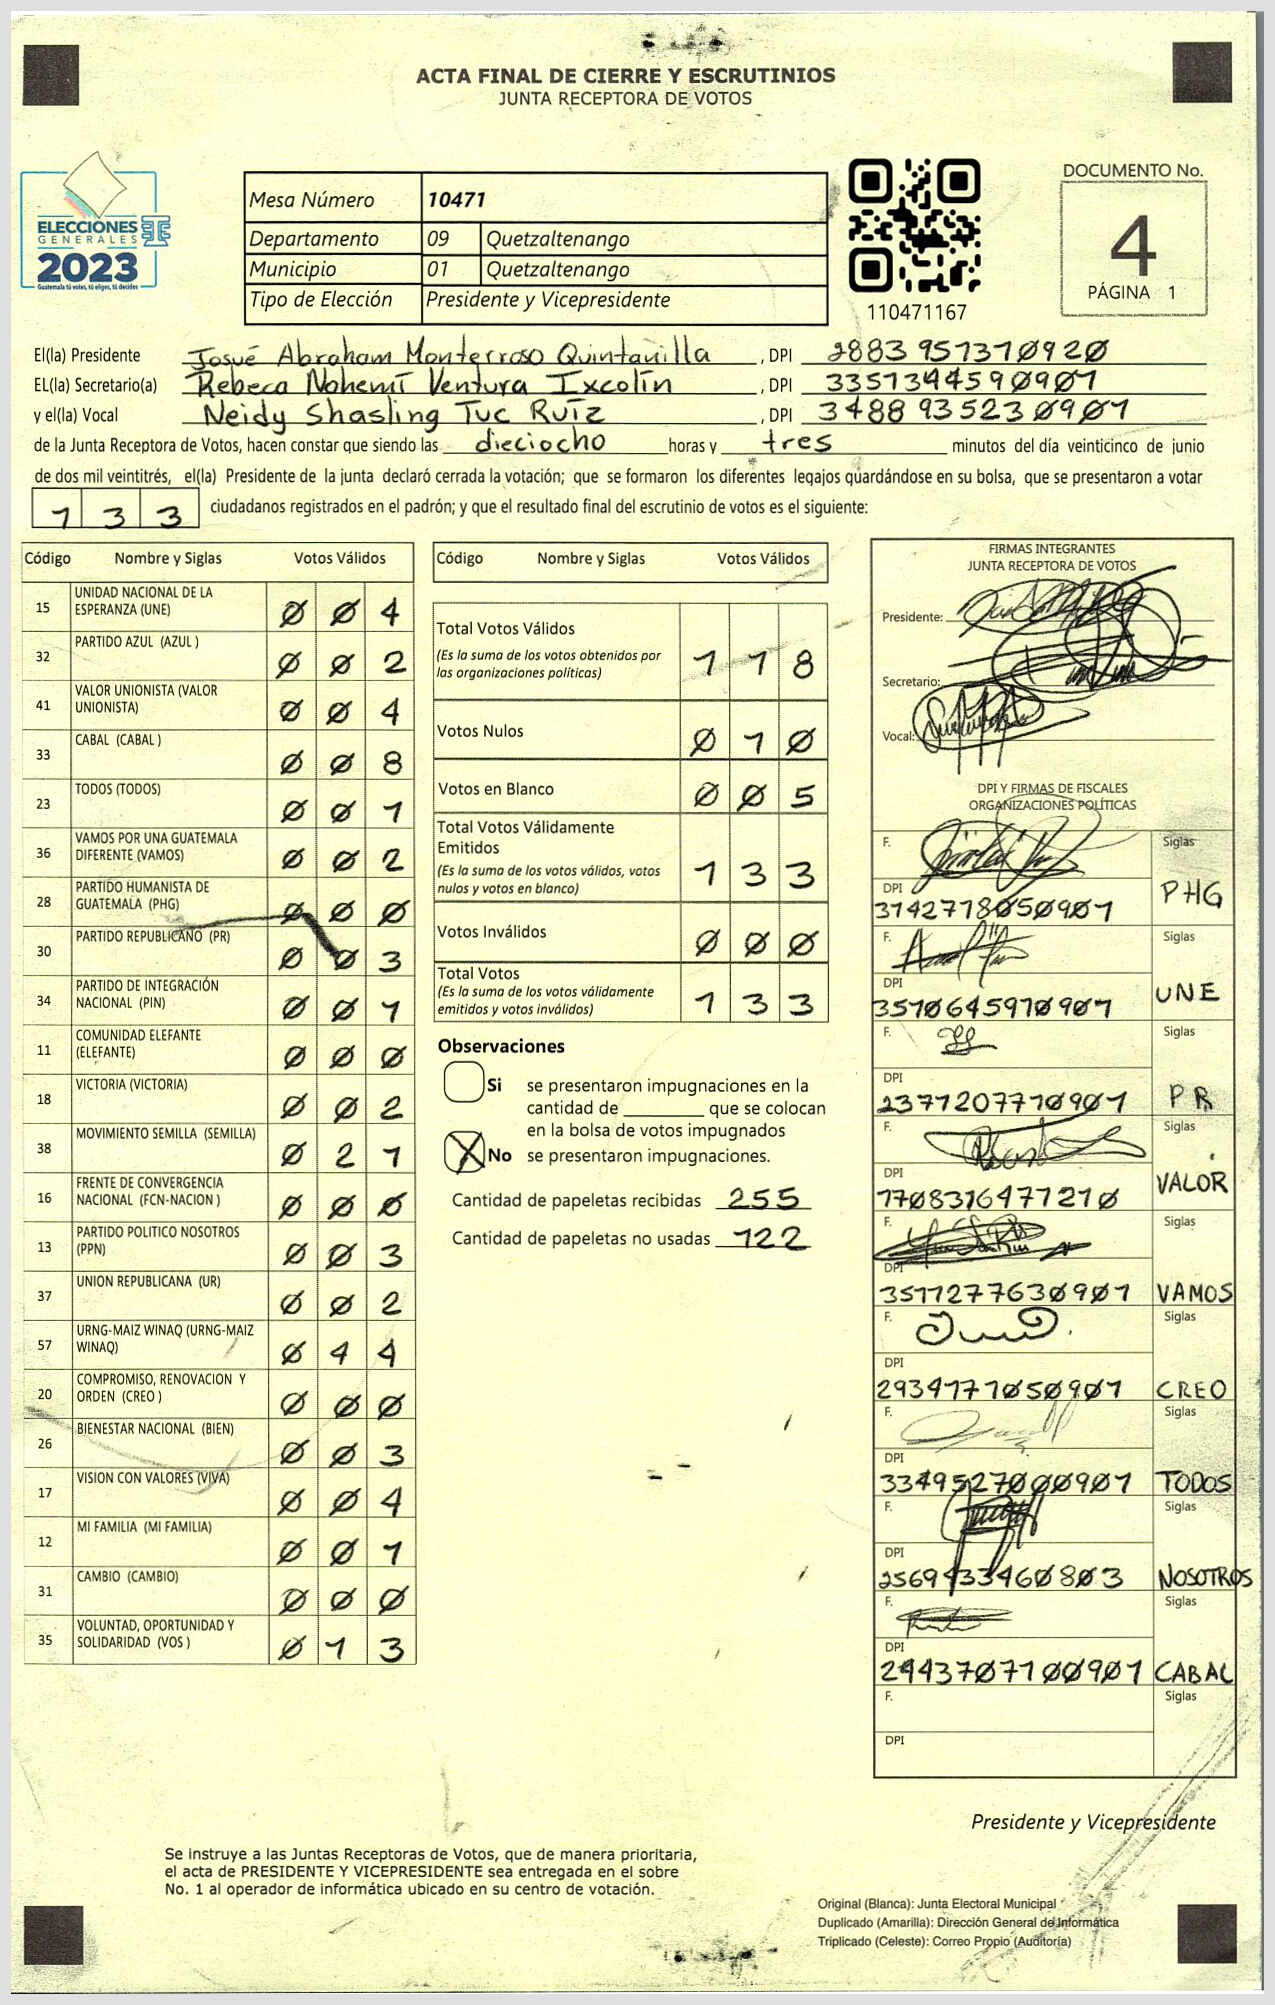 ACTA FINAL DE CIERRE Y ESCRUTINIOS
JUNTA RECEPTORA DE VOTOS
ELECCIONES
GENERALES
2023
Guatemala tú votes, tú eliges, tú decides
Mesa Número 10471
Departamento 09 Quetzaltenango
Municipio 01 Quetzaltenango
Tipo de Elección Presidente y Vicepresidente
110471167
DOCUMENTO No.
4
PÁGINA 1
El(la) Presidente Josué Abraham Monterroso Quintanilla , DPI 2883957370920
EL(la) Secretario(a) Rebeca Nohemí Ventura Ixcolín , DPI 3351344590901
y el(la) Vocal Neidy Shasling Tuc Ruíz , DPI 3488935230901
de la Junta Receptora de Votos, hacen constar que siendo las dieciocho horas y tres minutos del día veinticinco de junio
de dos mil veintitrés, el(la) Presidente de la junta declaró cerrada la votación; que se formaron los diferentes legajos guardándose en su bolsa, que se presentaron a votar
133 ciudadanos registrados en el padrón; y que el resultado final del escrutinio de votos es el siguiente:
Código Nombre y Siglas Votos Válidos
15 UNIDAD NACIONAL DE LA ESPERANZA (UNE) 0 0 4
32 PARTIDO AZUL (AZUL ) 0 0 2
41 VALOR UNIONISTA (VALOR UNIONISTA) 0 0 4
33 CABAL (CABAL ) 0 0 8
23 TODOS (TODOS) 0 0 1
36 VAMOS POR UNA GUATEMALA DIFERENTE (VAMOS) 0 0 2
28 PARTIDO HUMANISTA DE GUATEMALA (PHG) 0 0 0
30 PARTIDO REPUBLICANO (PR) 0 0 3
34 PARTIDO DE INTEGRACIÓN NACIONAL (PIN) 0 0 1
11 COMUNIDAD ELEFANTE (ELEFANTE) 0 0 0
18 VICTORIA (VICTORIA) 0 0 2
38 MOVIMIENTO SEMILLA (SEMILLA) 0 2 1
16 FRENTE DE CONVERGENCIA NACIONAL (FCN-NACION ) 0 0 0
13 PARTIDO POLITICO NOSOTROS (PPN) 0 0 3
37 UNION REPUBLICANA (UR) 0 0 2
57 URNG-MAIZ WINAQ (URNG-MAIZ WINAQ) 0 4 4
20 COMPROMISO, RENOVACION Y ORDEN (CREO ) 0 0 0
26 BIENESTAR NACIONAL (BIEN) 0 0 3
17 VISION CON VALORES (VIVA) 0 0 4
12 MI FAMILIA (MI FAMILIA) 0 0 1
31 CAMBIO (CAMBIO) 0 0 0
35 VOLUNTAD, OPORTUNIDAD Y SOLIDARIDAD (VOS ) 0 1 3
Código Nombre y Siglas Votos Válidos
Total Votos Válidos 1 1 8
(Es la suma de los votos obtenidos por
las organizaciones políticas)
Votos Nulos 0 1 0
Votos en Blanco 0 0 5
Total Votos Válidamente
Emitidos 1 3 3
(Es la suma de los votos válidos, votos
nulos y votos en blanco)
Votos Inválidos 0 0 0
Total Votos 1 3 3
(Es la suma de los votos válidamente
emitidos y votos inválidos)
Observaciones
Si se presentaron impugnaciones en la
cantidad de ________ que se colocan
en la bolsa de votos impugnados
X No se presentaron impugnaciones.
Cantidad de papeletas recibidas 255
Cantidad de papeletas no usadas 122
FIRMAS INTEGRANTES
JUNTA RECEPTORA DE VOTOS
Presidente:
Secretario:
Vocal:
DPI Y FIRMAS DE FISCALES
ORGANIZACIONES POLÍTICAS
F. Siglas
DPI 3142718050901 PHG
F. Siglas
DPI 3510645970901 UNE
F. Siglas
DPI 2371207710901 PR
F. Siglas
DPI 1708316471210 VALOR
F. Siglas
DPI 3511277630901 VAMOS
F. Siglas
DPI 2934177050901 CREO
F. Siglas
DPI 3349527000901 TODOS
F. Siglas
DPI 2569433460803 NOSOTROS
F. Siglas
DPI 2443707100901 CABAL
F. Siglas
DPI
Presidente y Vicepresidente
Se instruye a las Juntas Receptoras de Votos, que de manera prioritaria,
el acta de PRESIDENTE Y VICEPRESIDENTE sea entregada en el sobre
No. 1 al operador de informática ubicado en su centro de votación.
Original (Blanca): Junta Electoral Municipal
Duplicado (Amarilla): Dirección General de Informática
Triplicado (Celeste): Correo Propio (Auditoría)